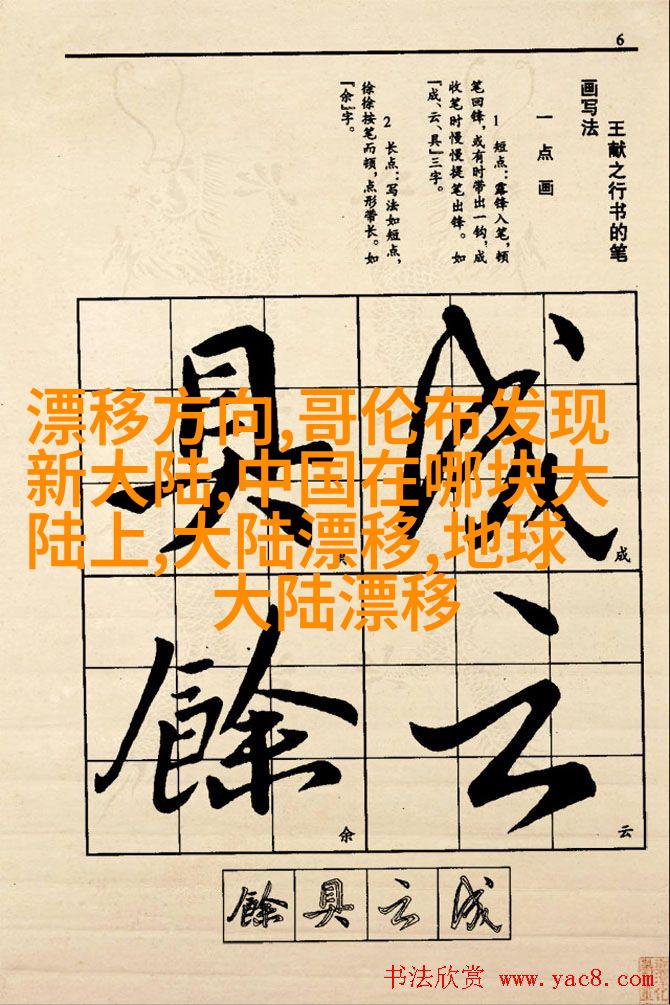 6
王献之行书的笔
画写法
一点画
1 短点：露锋入笔，顿
笔回锋，或有时带出一钩，成
收笔时慢慢提笔出锋。如
『成、云、具』三字。
2 长点：写法如短点，
徐徐按笔而顿，点形带长。如
『余』字。
成
具
云
餘
成
云
余
漂移方向,哥伦布发现
新大陆,中国在哪块大
陆上,大陆漂移,地球
大陆漂移
餘具云成
书法欣赏 www.yac8.com